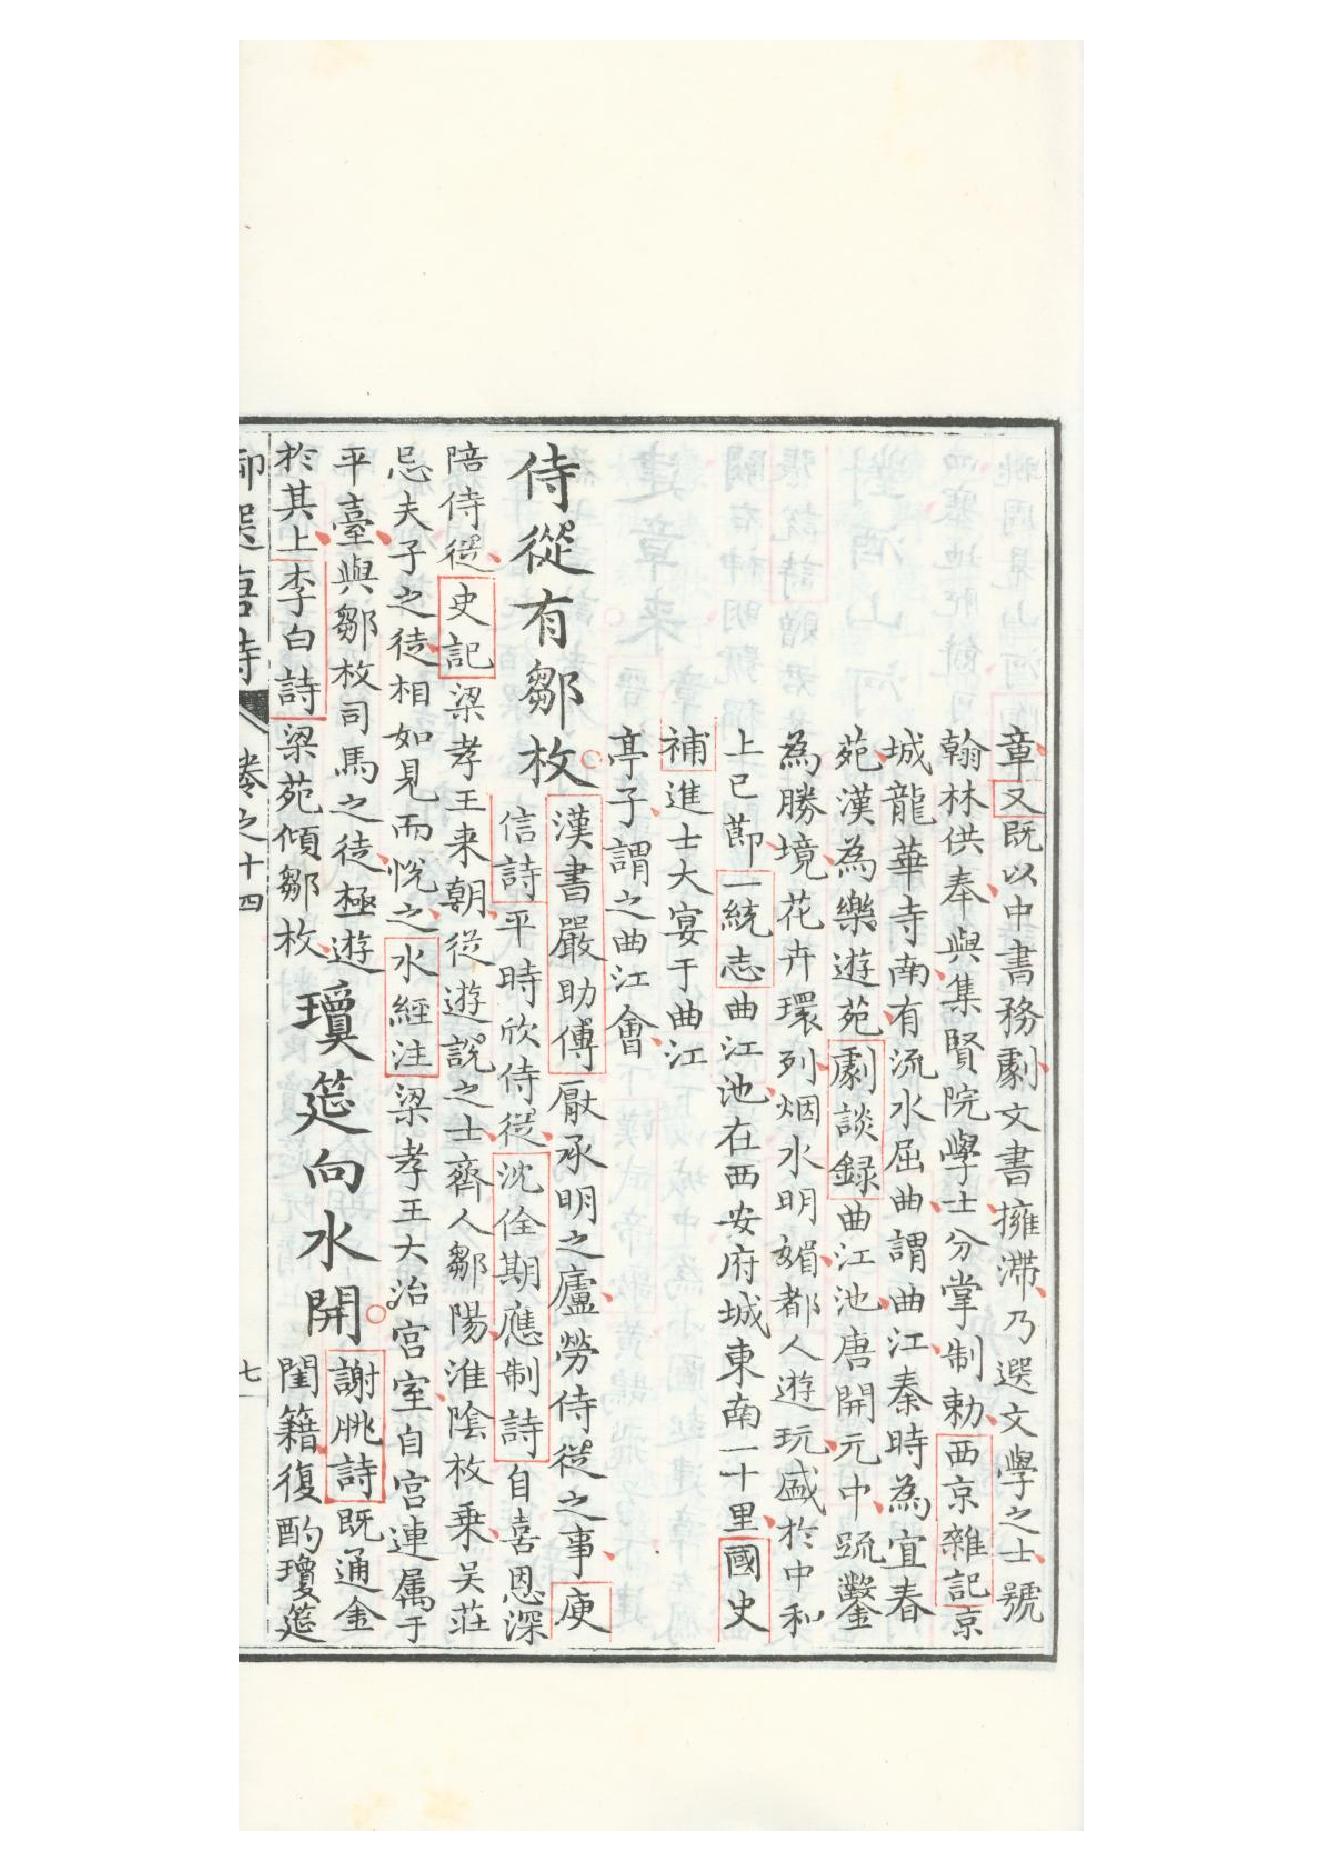 章又既以中書務劇文書擁滯乃選文學之士號
翰林供奉與集賢院學士分掌制勅西京雜記京
城龍華寺南有流水屈曲謂曲江秦時為宜春
苑漢為樂遊苑劇談録曲江池唐開元中疏鑿
為勝境花卉環列烟水明媚都人遊玩盛於中和
上巳節一統志曲江池在西安府城東南一十里國史
補進士大宴于曲江
亭子謂之曲江會
侍從有鄒枚
漢書嚴助傅厭承明之廬勞侍從之事庾
信詩平時欣侍從沈佺期應制詩自喜恩深
陪侍從史記梁孝王来朝從遊説之士齊人鄒陽淮陰枚乗吴莊
忌夫子之徒相如見而悦之水經注梁孝王大治宫室自宫連属于
平臺與鄒枚司馬之徒極遊
於其上李白詩梁苑傾鄒枚
瓊筵向水開
謝朓詩既通金
閨籍復酌瓊筵
御選唐詩 卷之十四 七